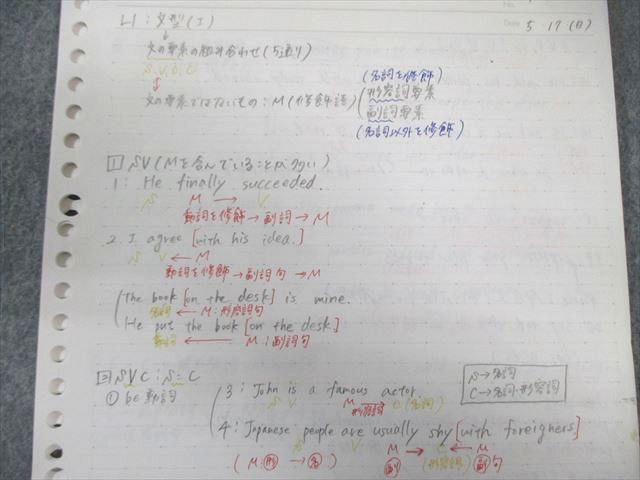 No.
Date 5 ・17 (日)
L1 : 文型 (I)
↓
文の要素の組み合わせ (5通り)
S. V. O. C
⇩
文の要素ではないもの : M (修飾語)
(名詞を修飾)
形容詞要素
副詞要素
(名詞以外を修飾)
1 SV (Mを含んでいることが多い)
1 : He finally succeeded.
S M → V
動詞を修飾→副詞→M
2. I agree [with his idea.]
S V ← M
動詞を修飾→副詞句→M
The book [on the desk] is mine.
名詞 ← M:形容詞句
He put the book [on the desk]
動詞 ← M:副詞句
2 SVC : S = C
① be動詞
S→名詞
C→名詞・形容詞
3 : John is a famous actor
S V M 形容詞 → C (名詞)
4 : Japanese people are usually shy [with foreigners]
S V M → C ← M
(M:形 → 名) 副 (形容詞) 副句